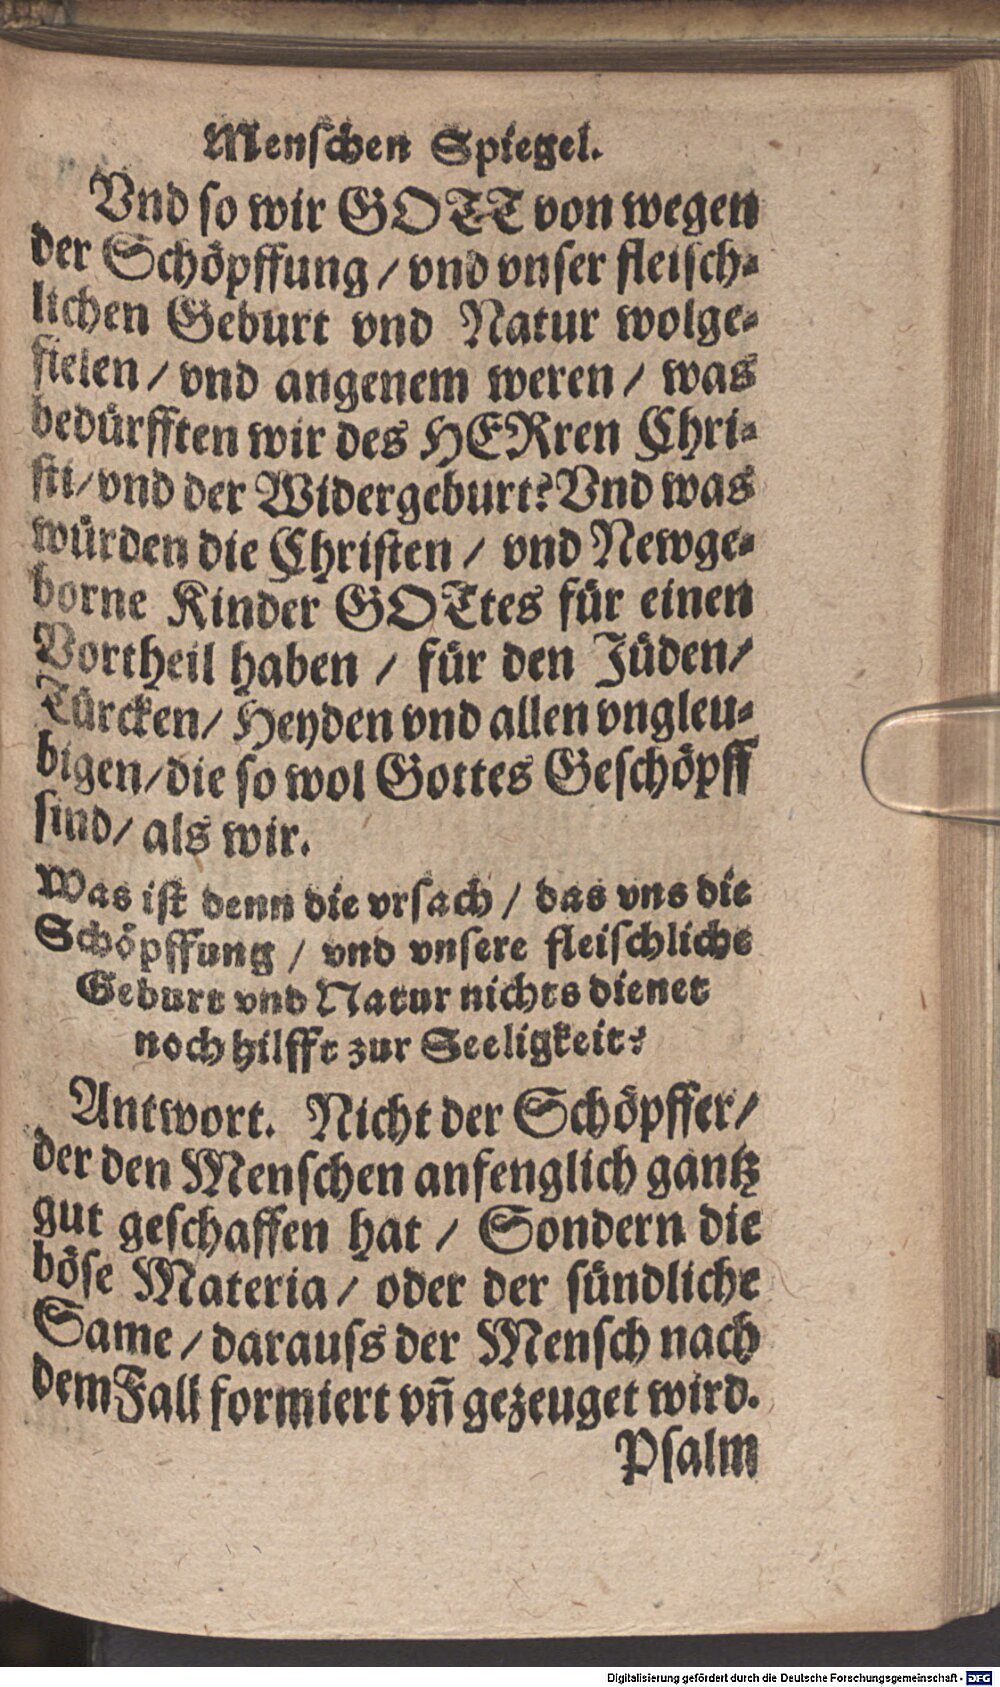 Menschen Spiegel.
Vnd so wir GOTT von wegen
der Schöpffung / vnd vnser fleisch-
lichen Geburt vnd Natur wolge-
fielen / vnd angenem weren / was
bedürfften wir des HERren Chri-
sti / vnd der Widergeburt? Vnd was
würden die Christen / vnd Newge-
borne Kinder GOTtes für einen
Vortheil haben / für den Jüden /
Türcken / Heyden vnd allen vngleu-
bigen / die so wol Gottes Geschöpff
sind / als wir.
Was ist denn die vrsach / das vns die
Schöpffung / vnd vnsere fleischliche
Geburt vnd Natur nichts dienet
noch hilfft zur Seeligkeit?
Antwort. Nicht der Schöpffer /
der den Menschen anfenglich gantz
gut geschaffen hat / Sondern die
böse Materia / oder der sündliche
Same / darauss der Mensch nach
dem Fall formiert vñ gezeuget wird.
Psalm
Digitalisierung gefördert durch die Deutsche Forschungsgemeinschaft - DFG